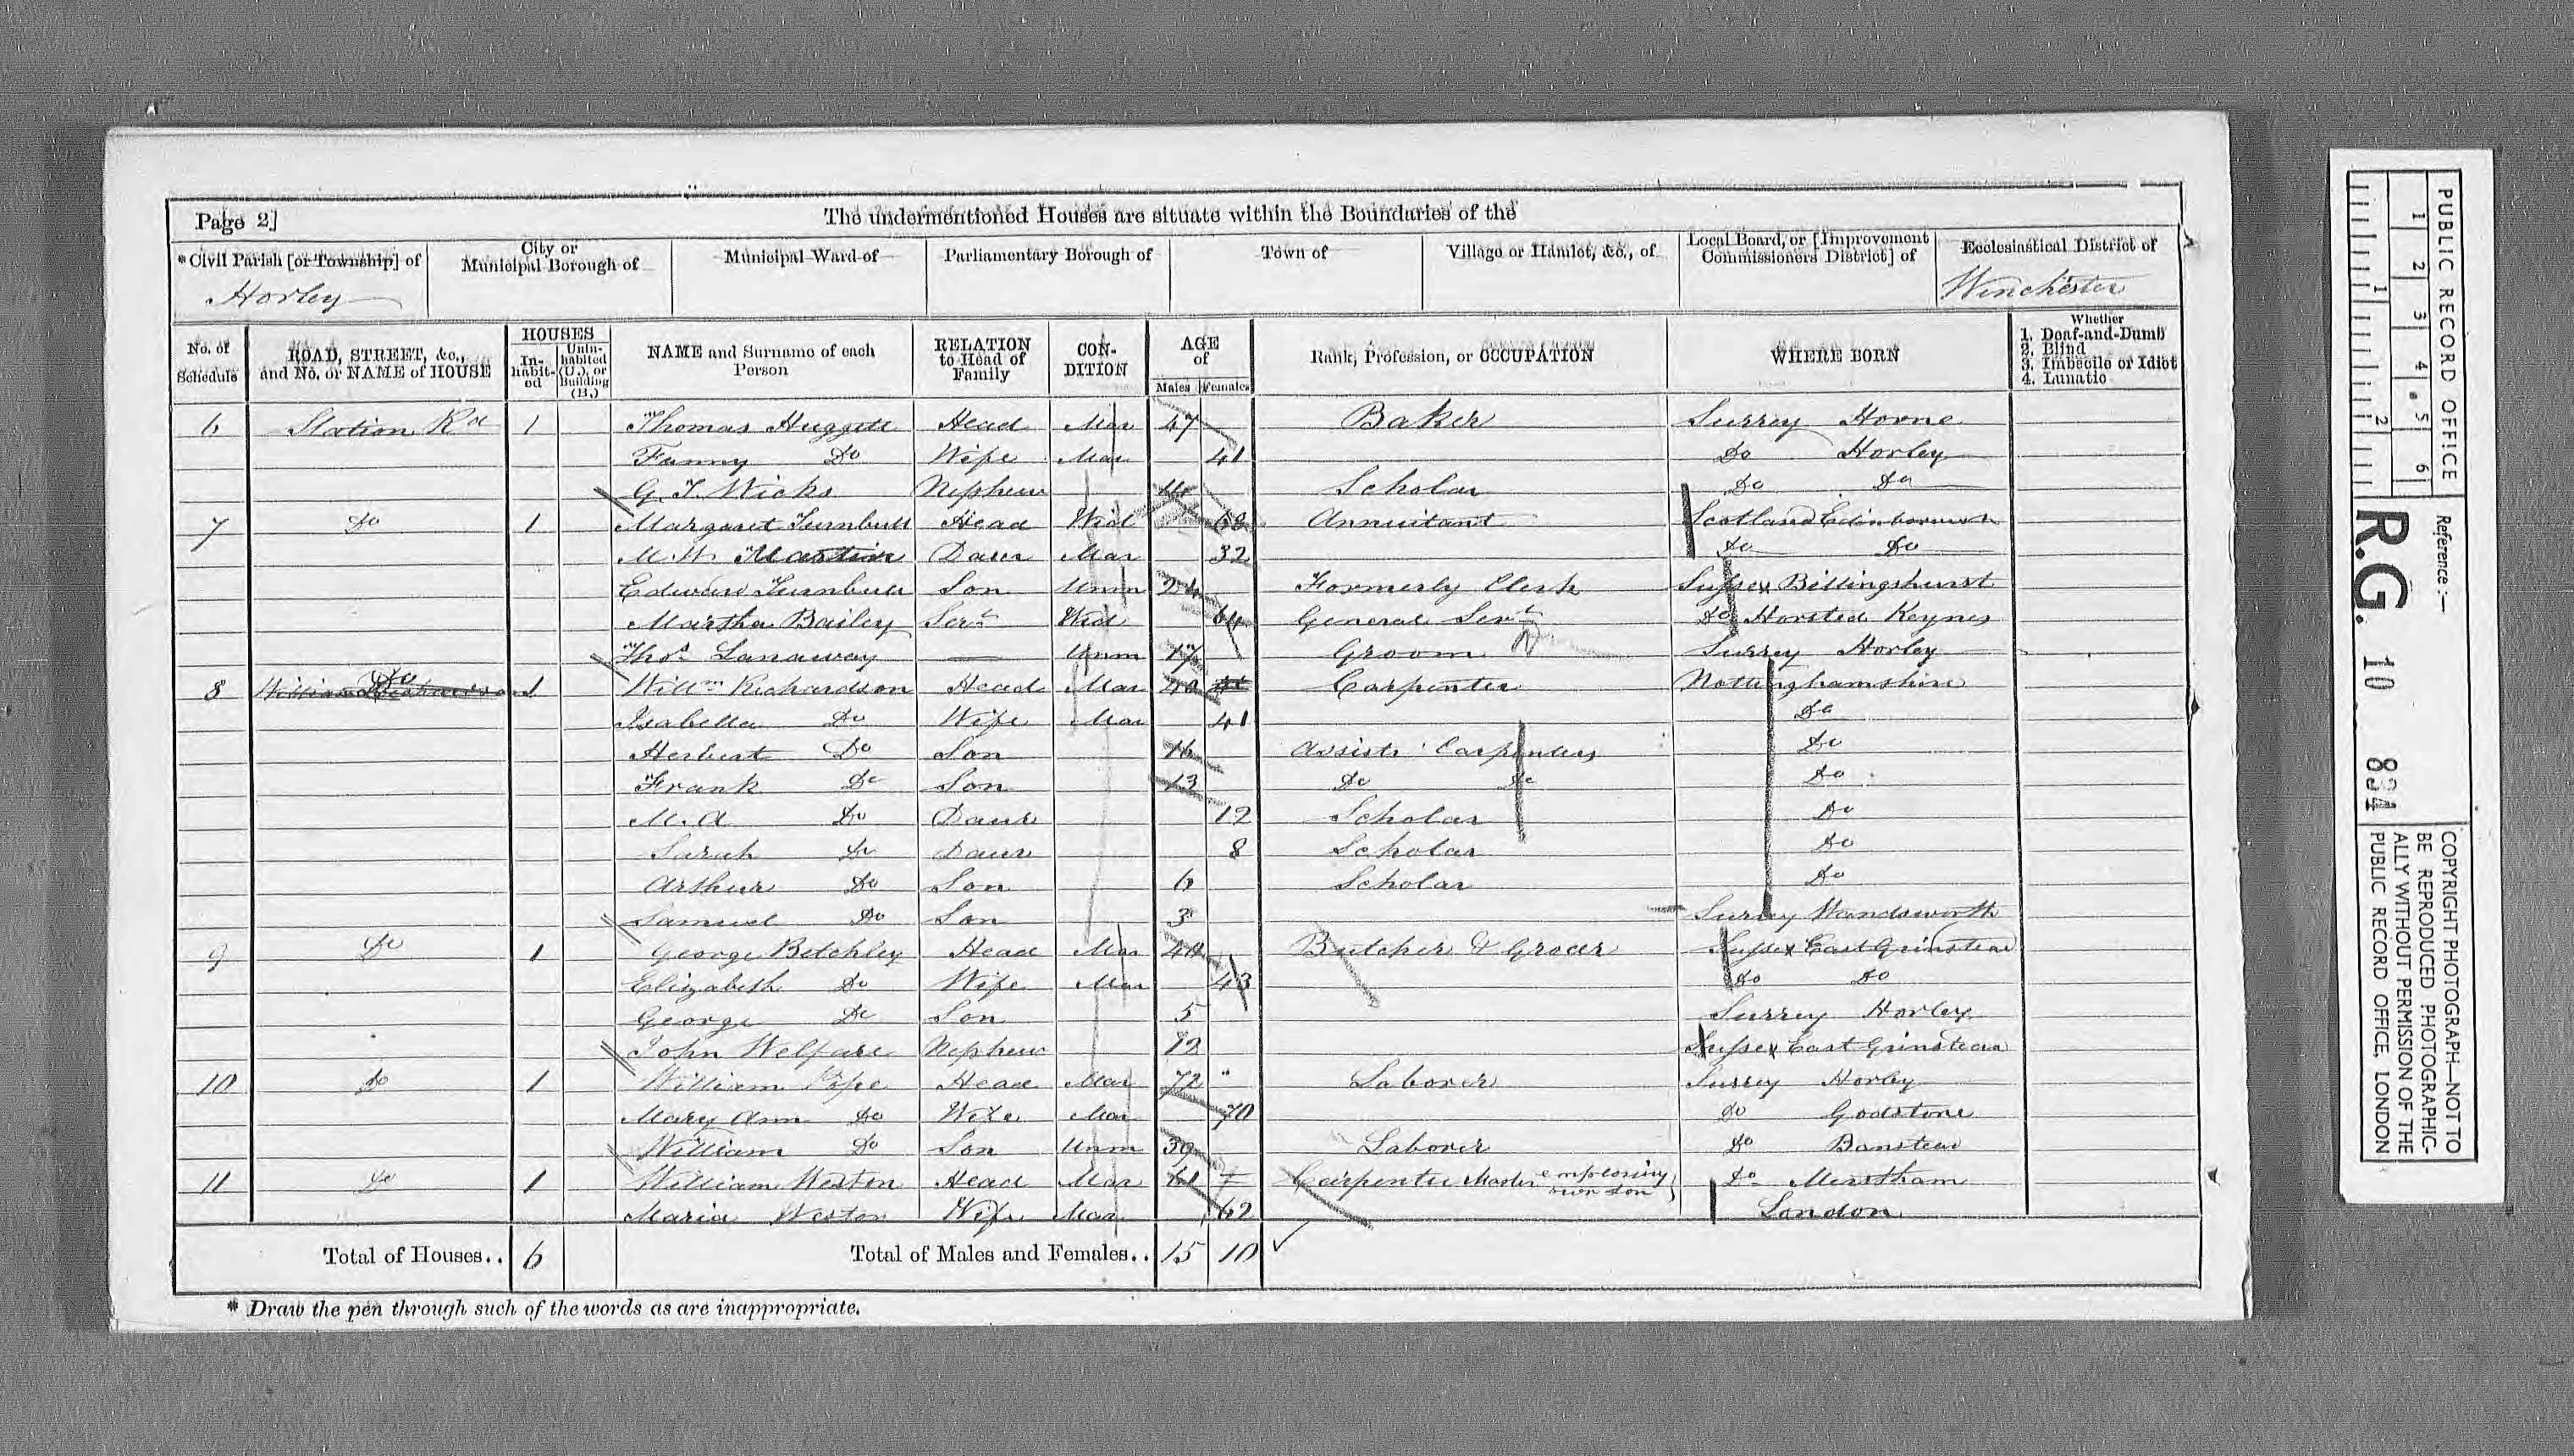 Page 2]
The undermentioned Houses are situate within the Boundaries of the
*Civil Parish [or Township] of
City or Municipal Borough of
Municipal Ward of
Parliamentary Borough of
Town of
Village or Hamlet, &c., of
Local Board, or [Improvement Commissioners District] of
Ecclesiastical District of
Horley
Winchester
No. of Schedule
ROAD, STREET, &c., and No. or NAME of HOUSE
HOUSES
In-habit-ed
Unin-habited (U.), or Building (B.)
NAME and Surname of each Person
RELATION to Head of Family
CON-DITION
AGE of
Males
Females
Rank, Profession, or OCCUPATION
WHERE BORN
Whether
1. Deaf-and-Dumb
2. Blind
3. Imbecile or Idiot
4. Lunatic
6 Station Rd 1 Thomas Huggett Head Mar 47 Baker Surrey Horne
Fanny Do Wife Mar 41 Do Horley
G. T. Wicks Nephew Scholar Do Do
7 Do 1 Margaret Turnbull Head Wid 68 Annuitant Scotland
M. W. Martin Daur Mar 32 Do Do
Edward Turnbull Son Unm 24 Formerly Clerk Sussex Billingshurst
Martha Bailey Servt Wid 64 General Servt Do Horsted Keynes
Thos Lanaway — Unm 17 Groom Surrey Horley
8 Do 1 Willm Richardson Head Mar 40 Carpenter Nottinghamshire
Isabella Do Wife Mar 41 Do
Herbert Do Son 16 Assists Carpenters Do
Frank Do Son 13 Do Do Do
M. A Do Daur 12 Scholar Do
Sarah Do Daur 8 Scholar Do
Arthur Do Son 6 Scholar Do
Samuel Do Son 3 Surrey Wandsworth
9 Do 1 George Betchley Head Mar 44 Butcher & Grocer Sussex East Grinstead
Elizabeth Do Wife Mar 43 Do Do
George Do Son 5 Surrey Horley
John Welfare Nephew 12 Sussex East Grinstead
10 Do 1 William Pipe Head Mar 72 " Laborer Surrey Horley
Mary Ann Do Wife Mar 70 Do Godstone
William Do Son Unm 39 Laborer Do Banstead
11 Do 1 William Weston Head Mar 61 Carpenter Master employing own son Do Merstham
Maria Weston Wife Mar 62 London
Total of Houses.. 6
Total of Males and Females.. 15 10
* Draw the pen through such of the words as are inappropriate.
PUBLIC RECORD OFFICE
1 2 3 4 5 6
1 2
Reference :—
R.G. 10 834
COPYRIGHT PHOTOGRAPH—NOT TO BE REPRODUCED PHOTOGRAPHIC-ALLY WITHOUT PERMISSION OF THE PUBLIC RECORD OFFICE, LONDON